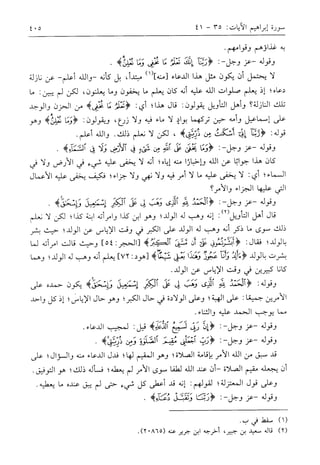 سورة إبراهيم الآيات: ٣٥ - ٤١
٤٠٥
به غذاؤهم وقوامهم.
وقوله -عز وجل-: ﴿رَبَّنَا إِنَّكَ تَعْلَمُ مَا نُخْفِي وَمَا نُعْلِنُ﴾.
لا يحتمل أن يكون مثل هذا الدعاء [منه](١) مبتدأ، بل كأنه -والله أعلم- عن نازلة
دعاه؛ إذ يعلم صلوات الله عليه أنه كان يعلم ما يخفون وما يعلنون، لكن لم يبين: ما
تلك النازلة؟ وأهل التأويل يقولون: قال هذا؛ أي: ﴿رَبَّنَا إِنَّكَ تَعْلَمُ مَا نُخْفِي﴾ من الحزن والوجد
على إسماعيل وأمه حين تركهما بواد لا ماء فيه ولا زرع، ويقولون: ﴿وَمَا نُعْلِنُ﴾ وهو
قوله: ﴿رَبَّنَا إِنِّي أَسْكَنتُ مِن ذُرِّيَّتِي﴾، لكن لا نعلم ذلك. والله أعلم.
وقوله -عز وجل-: ﴿وَمَا يَخْفَى عَلَى اللَّهِ مِن شَيْءٍ فِي الْأَرْضِ وَلَا فِي السَّمَاءِ﴾.
كان هذا جوابًا عن الله وإخبارًا منه إياه؛ أنه لا يخفى عليه شيء في الأرض ولا في
السماء؛ أي: لا يخفى عليه ما لا أمر فيه ولا نهي ولا جزاء؛ فكيف يخفى عليه الأعمال
التي عليها الجزاء والأمر؟
وقوله -عز وجل-: ﴿الْحَمْدُ لِلَّهِ الَّذِي وَهَبَ لِي عَلَى الْكِبَرِ إِسْمَاعِيلَ وَإِسْحَاقَ﴾.
قال أهل التأويل(٢): إنه وهب له الولد؛ وهو ابن كذا وامرأته ابنة كذا؛ لكن لا نعلم
ذلك سوى ما ذكر أنه وهب له الولد على الكبر في وقت الإياس عن الولد؛ حيث بشر
بالولد؛ فقال: ﴿أَبَشَّرْتُمُونِي عَلَى أَن مَّسَّنِيَ الْكِبَرُ﴾ [الحجر: ٥٤] وحيث قالت امرأته لما
بشرت بالولد ﴿ءَأَلِدُ وَأَنَا عَجُوزٌ وَهَذَا بَعْلِي شَيْخًا﴾ [هود: ٧٢] يعلم أنه وهب له الولد؛ وهما
كانا كبيرين في وقت الإياس عن الولد.
وقوله: ﴿الْحَمْدُ لِلَّهِ الَّذِي وَهَبَ لِي عَلَى الْكِبَرِ إِسْمَاعِيلَ وَإِسْحَاقَ﴾ يكون حمده على
الأمرين جميعًا: على الهبة؛ وعلى الولادة في حال الكبر؛ وهو حال الإياس؛ إذ كل واحد
مما يوجب الحمد عليه والثناء.
وقوله -عز وجل-: ﴿إِنَّ رَبِّي لَسَمِيعُ الدُّعَاءِ﴾ قيل: لمجيب الدعاء.
وقوله -عز وجل-: ﴿رَبِّ اجْعَلْنِي مُقِيمَ الصَّلَاةِ وَمِن ذُرِّيَّتِي﴾.
قد سبق من الله الأمر بإقامة الصلاة؛ وهو المقيم لها؛ فدل الدعاء منه والسؤال؛ على
أن يجعله مقيم الصلاة -أن عند الله لطفا سوى الأمر لم يعطه؛ فسأله ذلك؛ هو التوفيق.
وعلى قول المعتزلة؛ لقولهم: إنه قد أعطى كل شيء حتى لم يبق عنده ما يعطيه.
وقوله -عز وجل-: ﴿رَبَّنَا وَتَقَبَّلْ دُعَاءِ﴾.
(١) سقط في ب.
(٢) قاله سعيد بن جبير، أخرجه ابن جرير عنه (٢٠٨٦٥).